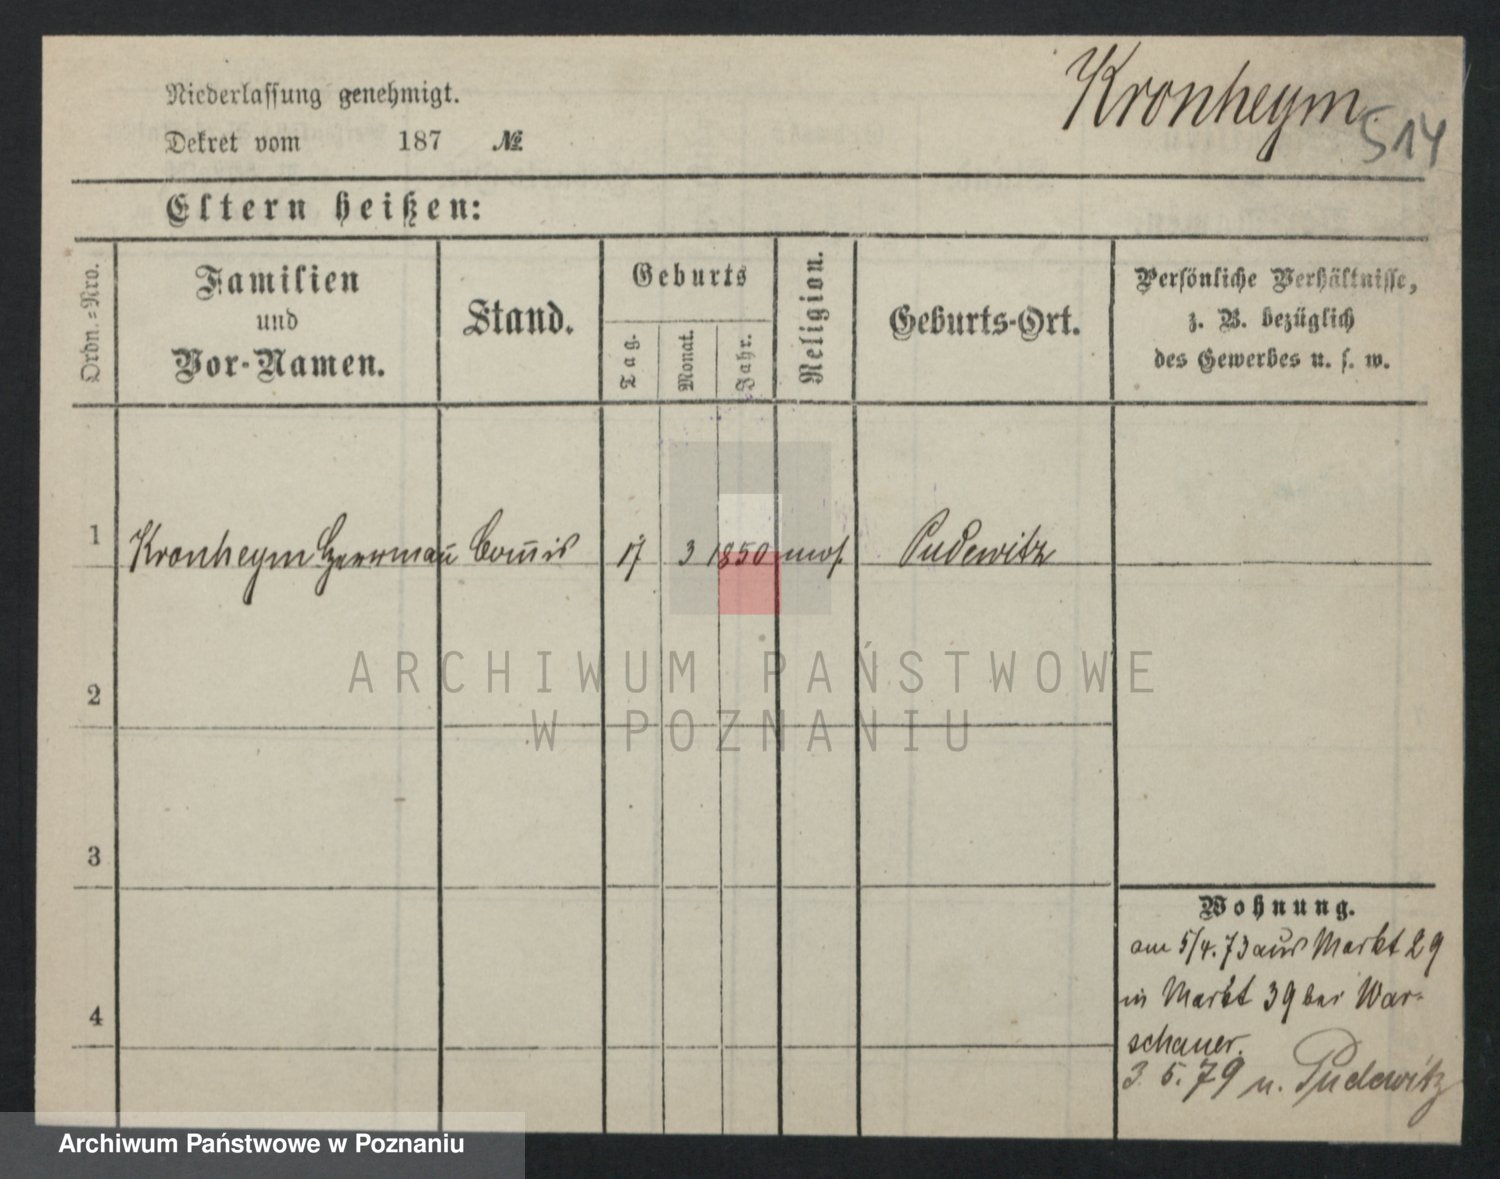 Niederlassung genehmigt.
Kronheym.
Dekret vom 187 №
514
Eltern heißen:
Ordn.=Nro.
Familien
und
Vor-Namen.
Stand.
Geburts
Tag.
Monat.
Jahr.
Religion.
Geburts-Ort.
Persönliche Verhältnisse,
z. B. bezüglich
des Gewerbes u. s. w.
1 Kronheym Herrmañ Com̃is 17 3 1850 mos. Pudewitz
2
3
4
Wohnung.
am 5/4.73 aus Markt 29
in Markt 39 bei War-
schauer.
3. 5. 79 n. Pudewitz
ARCHIWUM PAŃSTWOWE
W POZNANIU
Archiwum Państwowe w Poznaniu